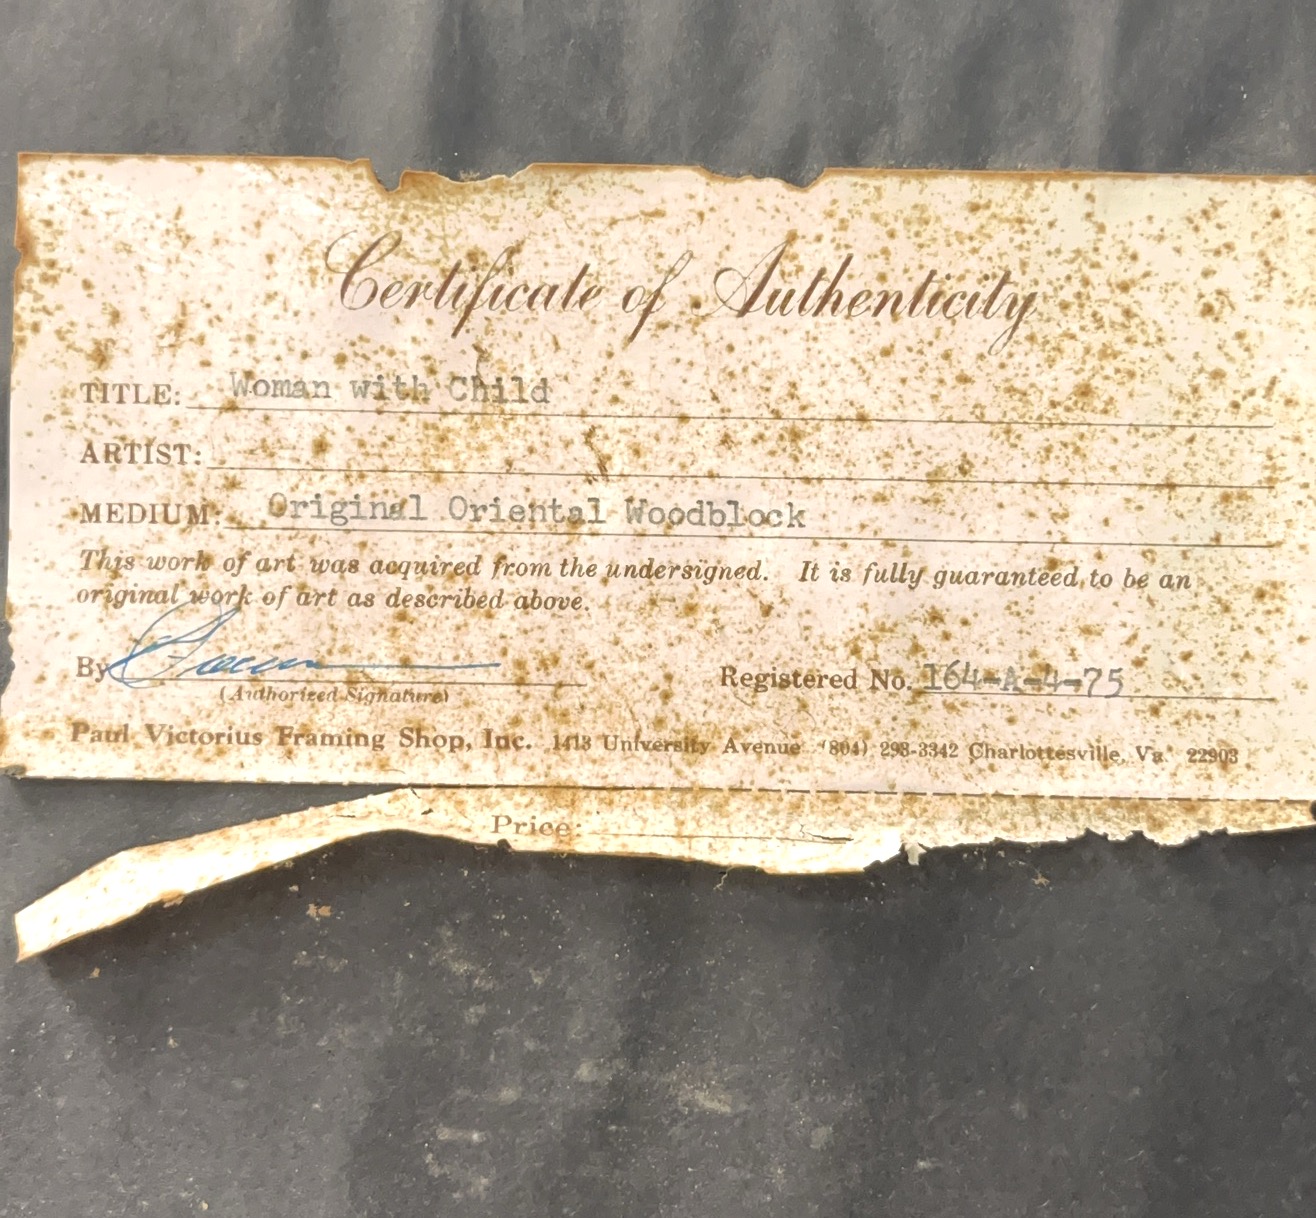 Certificate of Authenticity
TITLE: Woman with Child
ARTIST:
MEDIUM: Original Oriental Woodblock
This work of art was acquired from the undersigned. It is fully guaranteed to be an
original work of art as described above.
By
Registered No. I64-A-4-75
(Authorized Signature)
Paul Victorius Framing Shop, Inc. 1413 University Avenue (804) 293-3342 Charlottesville, Va. 22903
Price: